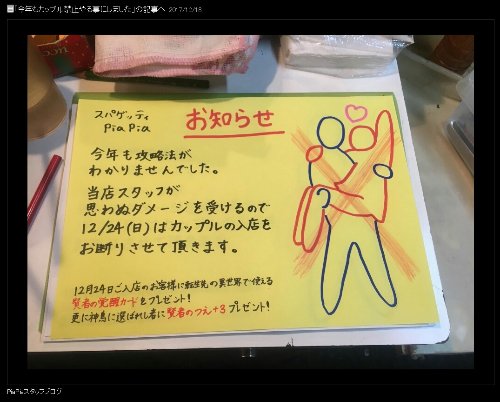 「今年もカップル禁止やる事にしました」の記事へ 2017/12/18
スパゲッティ
Pia Pia
お知らせ
今年も攻略法が
わかりませんでした。
当店スタッフが
思わぬダメージを受けるので
12/24(日)はカップルの入店を
お断りさせて頂きます。
12月24日ご入店のお客様に転生先の異世界で使える
賢者の覚醒カードをプレゼント!
更に神馬に選ばれし者に賢者のつえ+3プレゼント!
PiaPiaスタッフブログ